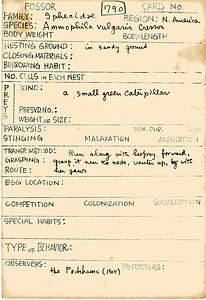 FOSSOR 790 CARD No.
FAMILY: Sphecidae REGION: N. America
SPECIES: Ammophila vulgaris Cresson
BODY WEIGHT BODY LENGTH
NESTING GROUND: in sandy ground
CLOSING MATERIALS:
BURROWING HABIT:
No. CELLS IN EACH NEST
PREY KIND: a small green caterpillar
PRESVD No.:
WEIGHT OR SIZE:
PARALYSIS: MAX. DUR.
STINGING MALAXATION AMPUTATION
TRANSP. METHOD: Run along with heading forward,
GRASPING: grasp it near the neck, venter up, by with
ROUTE: her jaws
EGG LOCATION:
COMPETITION COLONIZATION SOCIALIZATION
SPECIAL HABITS:
TYPE OF BEHAVIOR:
OBSERVERS: the Peckhams (1905) REPORTERS: